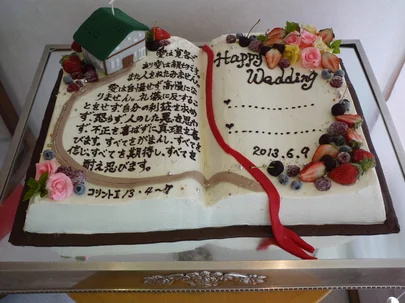 愛は寛容で
あり愛は親切です。
また人をねたみません。
愛は自慢せず高慢にな
りません。礼儀に反するこ
とをせず自分の利益を求め
ず、怒らず、人のした悪を思わ
ず、不正を喜ばずに真理を喜
びます。すべてをがまんし、すべてを
信じ、すべてを期待し、すべてを
耐え忍びます。
コリントI 13・4〜7
Happy
Wedding
2013.6.9